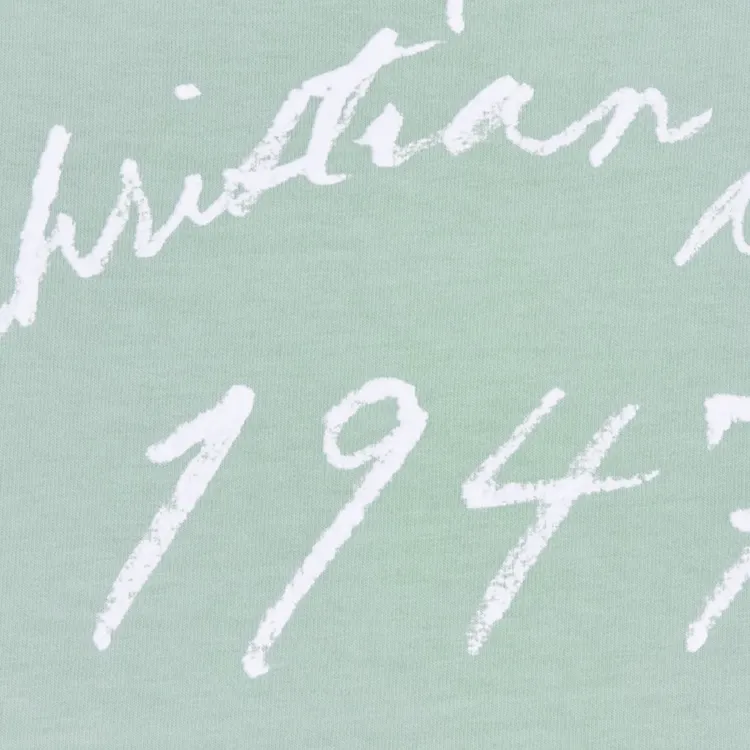 hristian
194